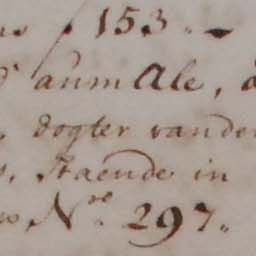 153.-
d'aumale,
dogter vander
, staende in
N.re 297.